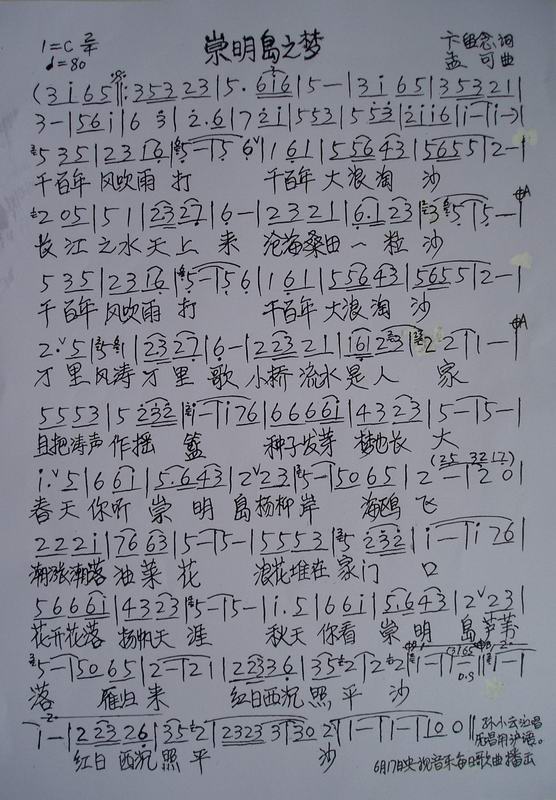 崇明岛之梦
1=C 2/4
♩=80
卞留念 词
孟可 曲
(3 i 6 5 ‖: 3 5 3 2 3 | 5 . 6 i 6 | 5 — | 3 i 6 5 | 3 5 3 2 1 |
3 — | 5 6 i | 6 3 | 2 . 6 | 7 2 i | 5 5 3 | 5 5 3 | 2 i i 6 | i — | i —)
5 3 5 | 2 3 1 6 | 5 — | 5 6 | 1 6 1 | 5 5 6 4 3 | 5 6 5 5 | 2 — |
千百年 风吹雨 打 千百年 大浪淘 沙
2 0 5 | 5 1 | 2 3 2 7 | 6 — | 2 3 2 1 | 6 . 1 2 3 | 3 5 | 5 — |
长江之水天上 来 沧海桑田一粒 沙
5 3 5 | 2 3 1 6 | 5 — | 5 6 | 1 6 1 | 5 5 6 4 3 | 5 6 5 5 | 2 — |
千百年 风吹雨 打 千百年 大浪淘 沙
2 . 5 | 5 6 | 2 3 2 7 | 6 — | 2 2 3 2 1 | 1 6 1 2 3 | 2 2 | 1 — |
万里风涛万里 歌 小桥流水是人 家
5 5 5 3 | 5 2 3 2 | i — | i 7 6 | 6 6 6 6 i | 4 3 2 3 | 5 — | 5 — |
且把涛声 作摇 篮 种子发芽 梦也长 大
i . 5 | 6 6 i | 5 . 6 4 3 | 2 2 3 | 5 — | 5 0 6 5 | 2 — | 2 0 |
(2 5 3 2 1 7)
春天你听 崇 明 岛杨柳岸 海鸥 飞
2 2 2 i | 7 6 6 3 | 5 — | 5 — | 5 5 5 3 | 5 2 3 2 | i — | i 7 6 |
潮涨潮落 油菜 花 浪花堆在 家门 口
5 6 6 6 i | 4 3 2 3 | 5 — | 5 — | i . 5 | 6 6 i | 5 . 6 4 3 | 2 2 3 |
花开花落 扬帆天 涯 秋天 你看 崇 明 岛芦苇
5 — | 5 0 6 5 | 2 — | 2 1 | 2 2 3 3 6 | 3 5 2 | 2 2 | 1 — | 1 — | 1 — |
落 雁归 来 红日西沉 照 平 沙
1 — | 2 2 3 2 6 | 3 5 2 | 2 3 2 3 3 | 3 0 2 | 1 — | 1 — | 1 0 0 ‖
红日 西沉 照 平 沙
孙小云演唱
演唱用沪语。
6月17日央视音乐每日歌曲播出